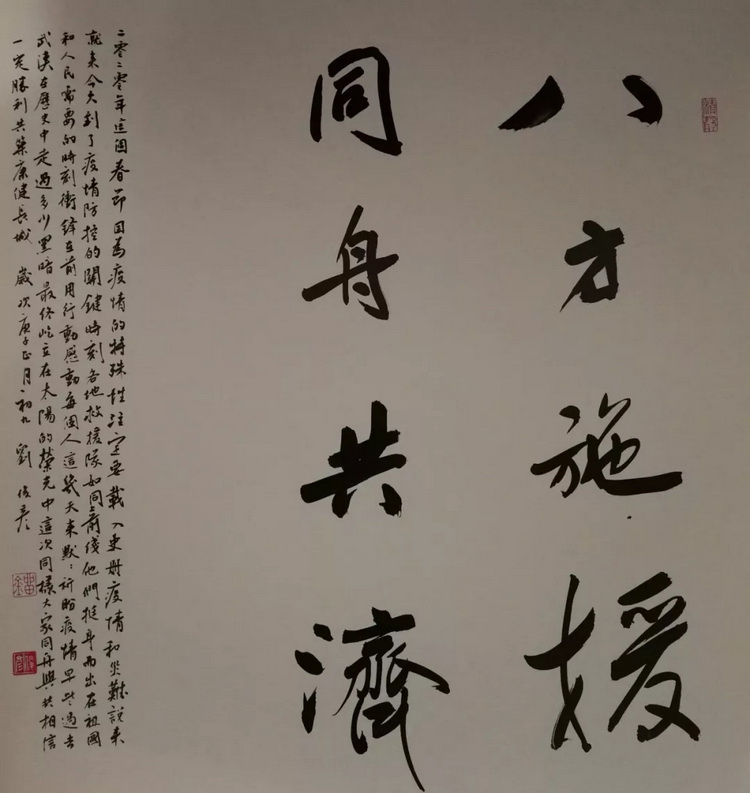 八方施援
同舟共濟
二零二零年這個春節因為疫情的特殊性註定要載入史册疫情和災難說來
就来今天到了疫情防控的關鍵時刻各地救援隊如同前线他們挺身而出在祖國
和人民需要的時刻衝鋒在前用行動感動每個人這幾天来默:祈盼疫情早些過去
武漢在歷史中走過多少黑暗最终屹立在太陽的榮光中這次同樣大家同舟與共相信
一定勝利共築康健長城 歲次庚子正月初九 劉